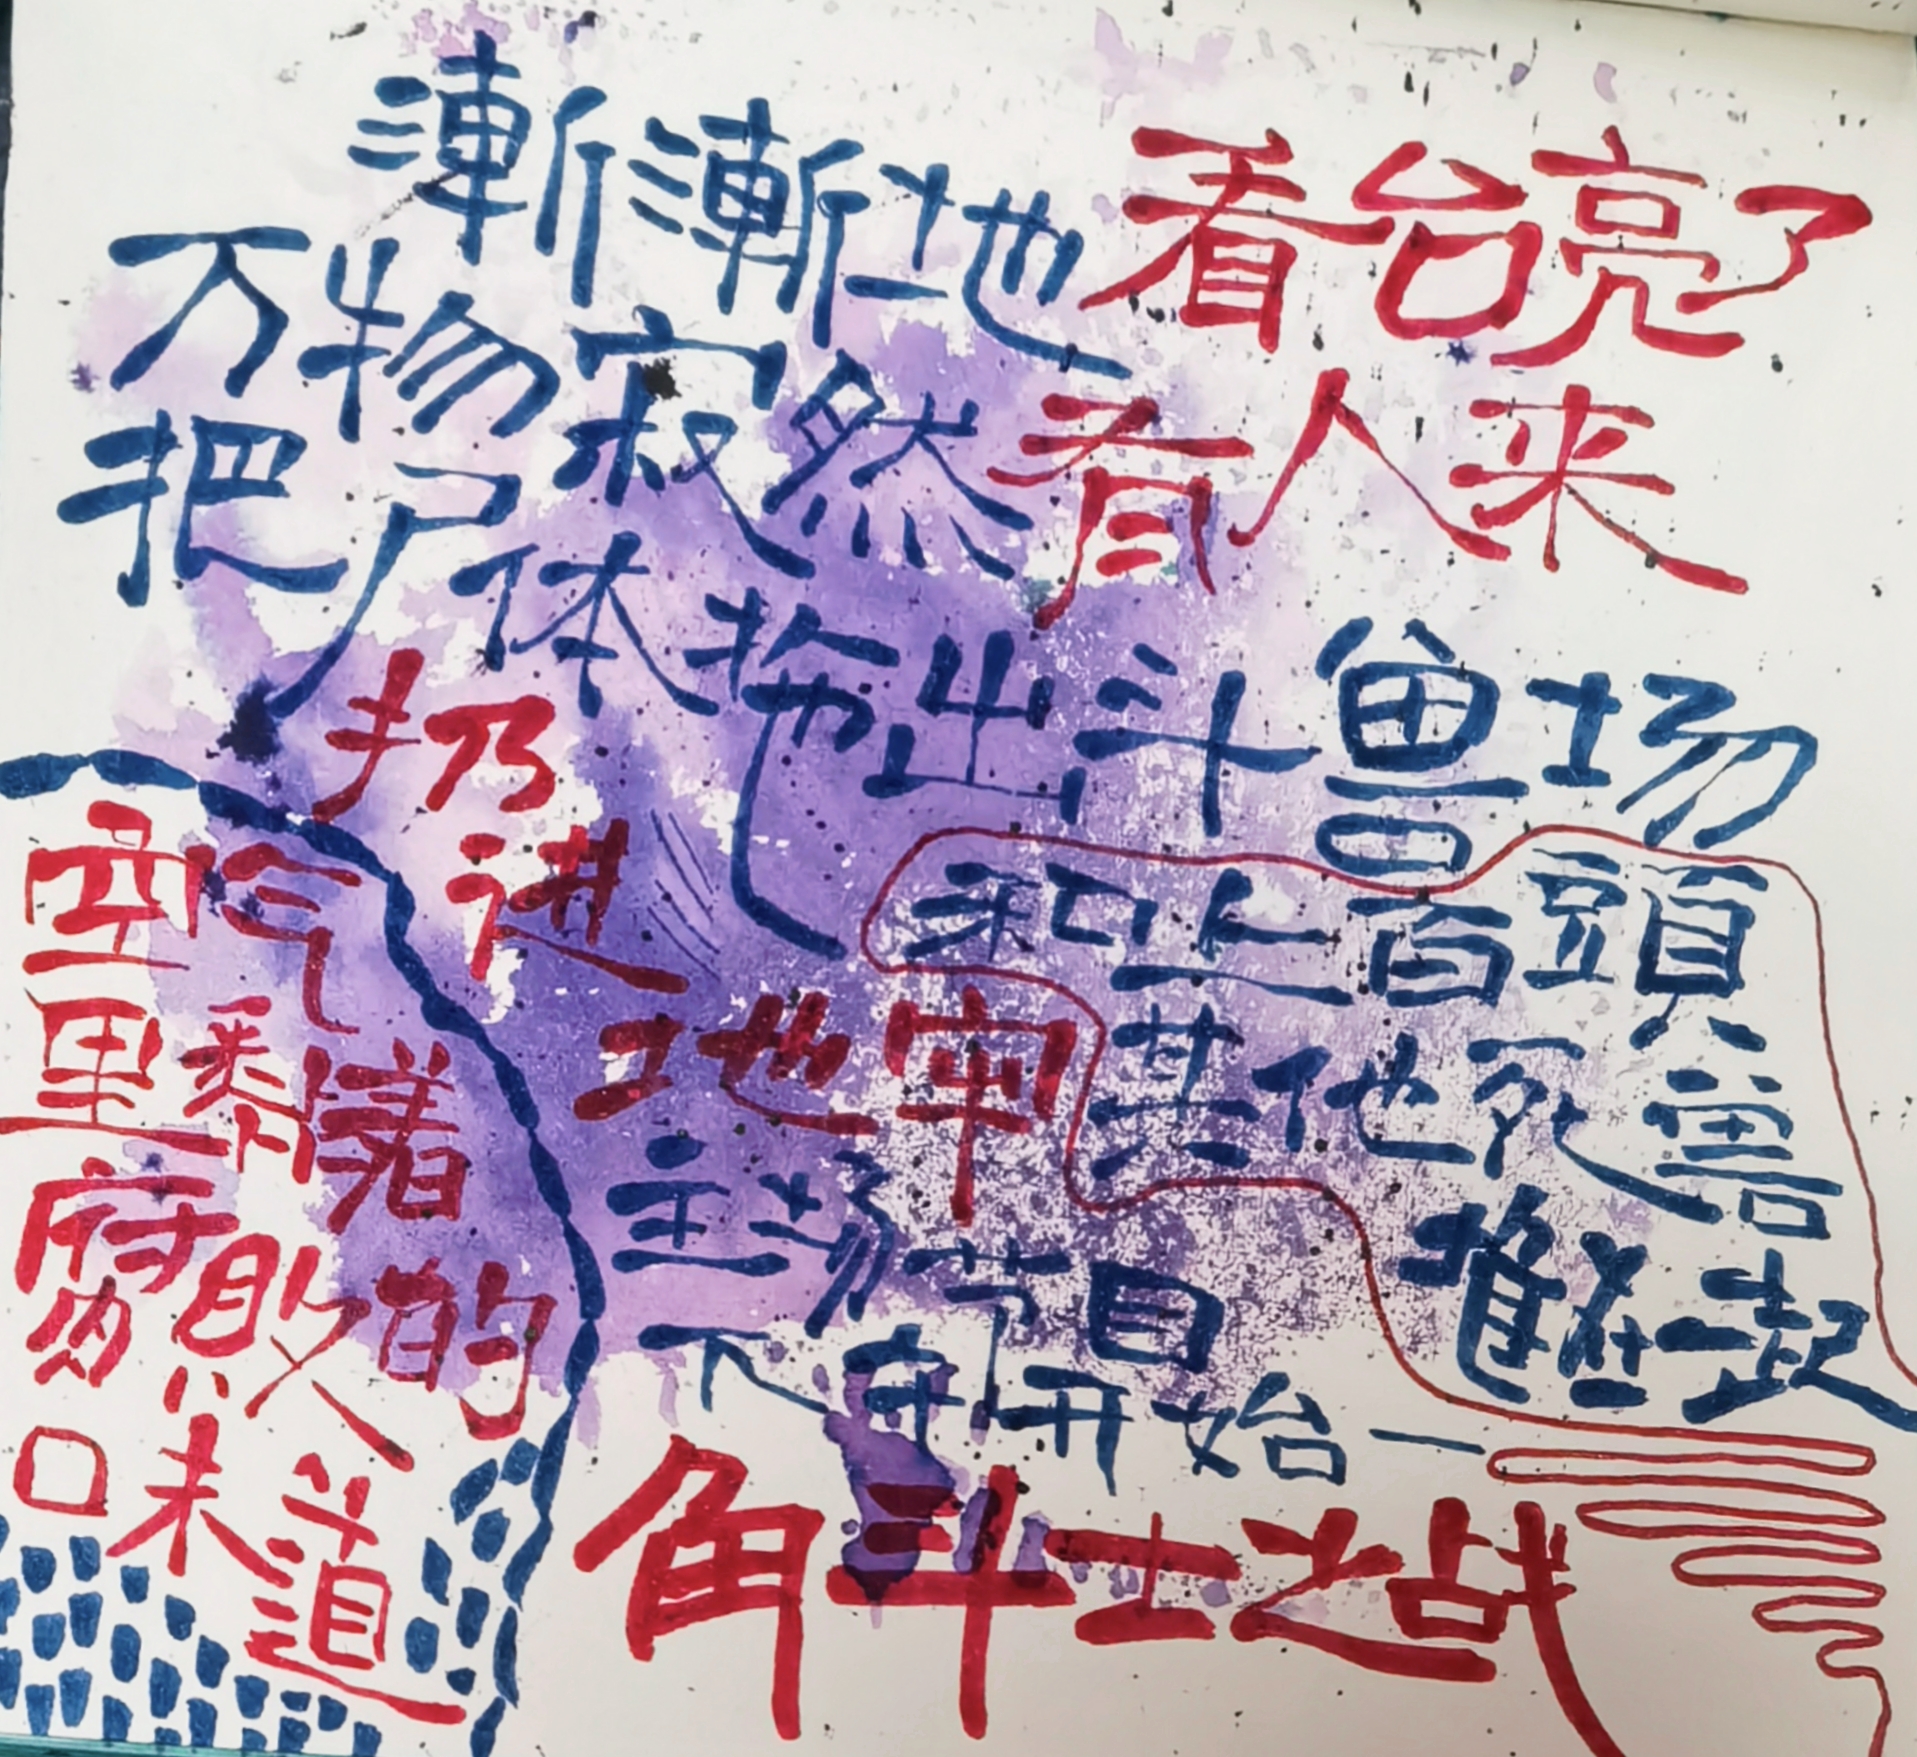 漸漸地
万物寂然
看台亮了
有人来
把尸体拖出斗兽场
扔进
地牢
和上百頭
其他死兽
堆在一起
空气
里
腐败的
味道
主场节目
下午开始—
角斗士之战